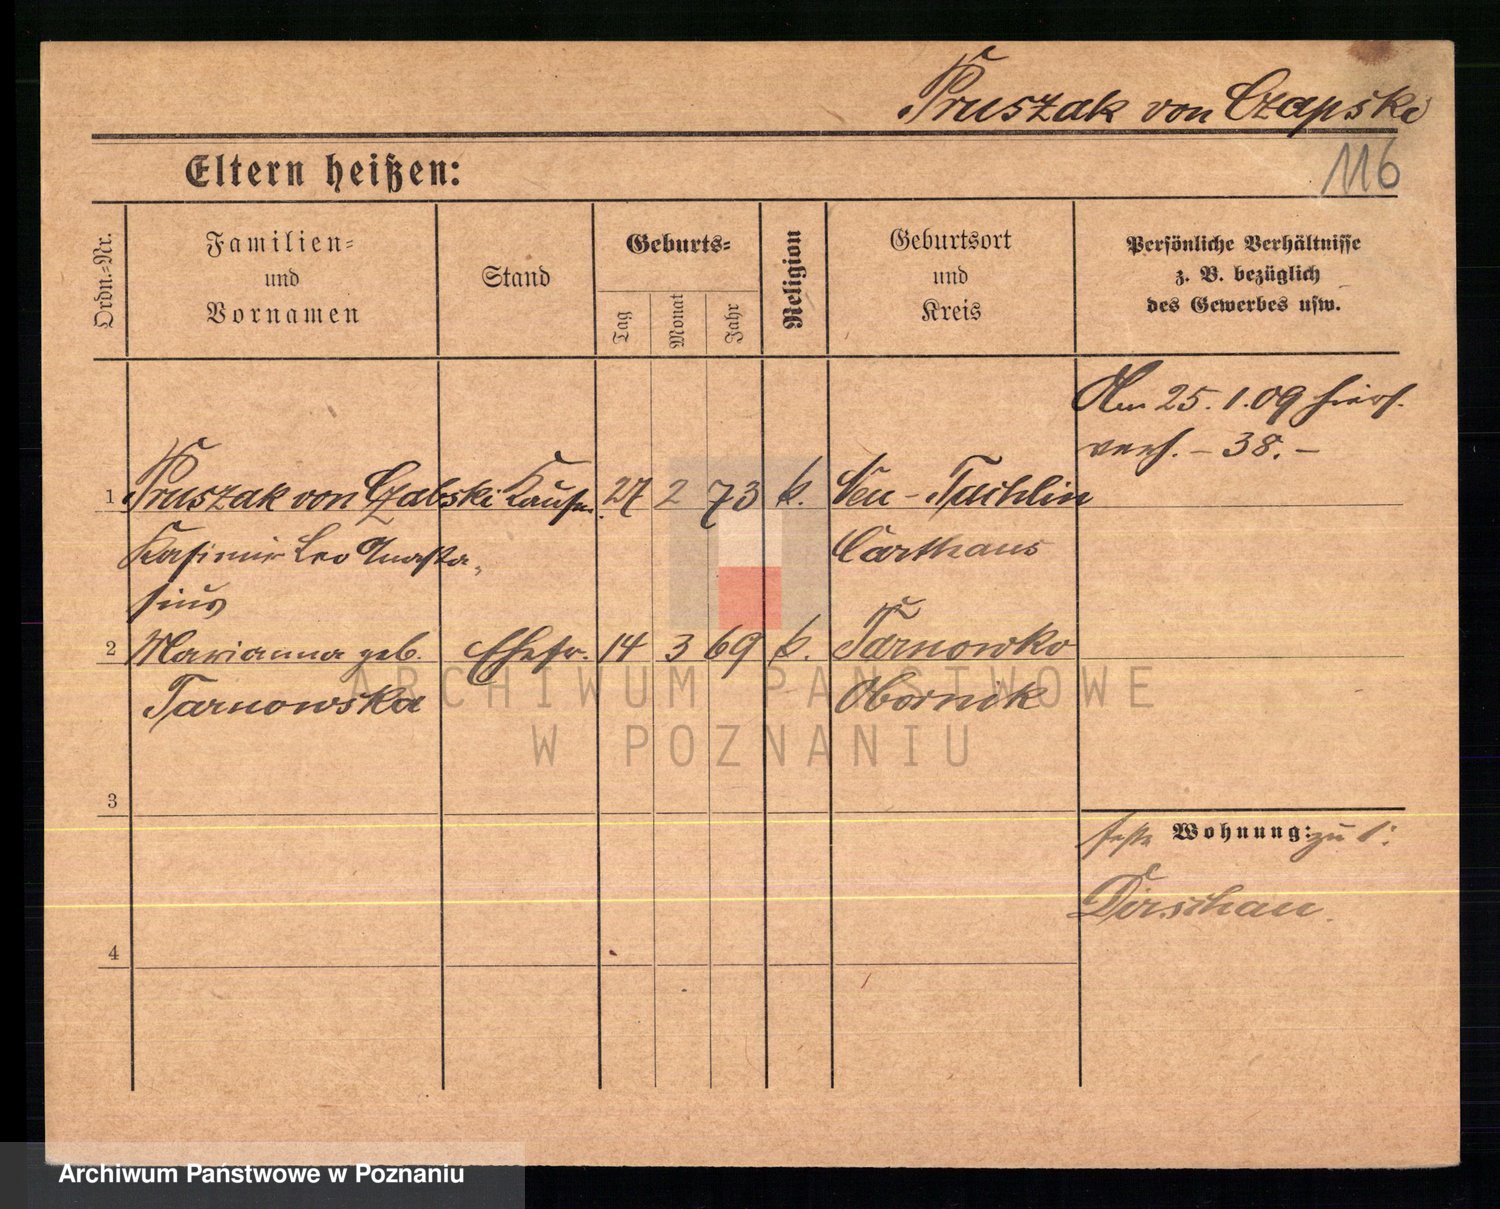 Pruszak von Czapski
116
Eltern heißen:
Ordn.-Nr.
Familien-
und
Vornamen
Stand
Geburts-
Tag
Monat
Jahr
Religion
Geburtsort
und
Kreis
Persönliche Verhältnisse
z. B. bezüglich
des Gewerbes usw.
Am 25.1.09 hiers.
verh. – 38. –
1 Pruszak von Czabski Kaufm. 27 2 73 k. Neu-Tuchlin
Kasimir Leo Anasta- Carthaus
sius
2 Marianna geb. Ehefr. 14 3 69 k. Tarnowko
Tarnowska Obornik
3
feste Wohnung: zu 1:
Dirschau.
4
ARCHIWUM PAŃSTWOWE
W POZNANIU
Archiwum Państwowe w Poznaniu